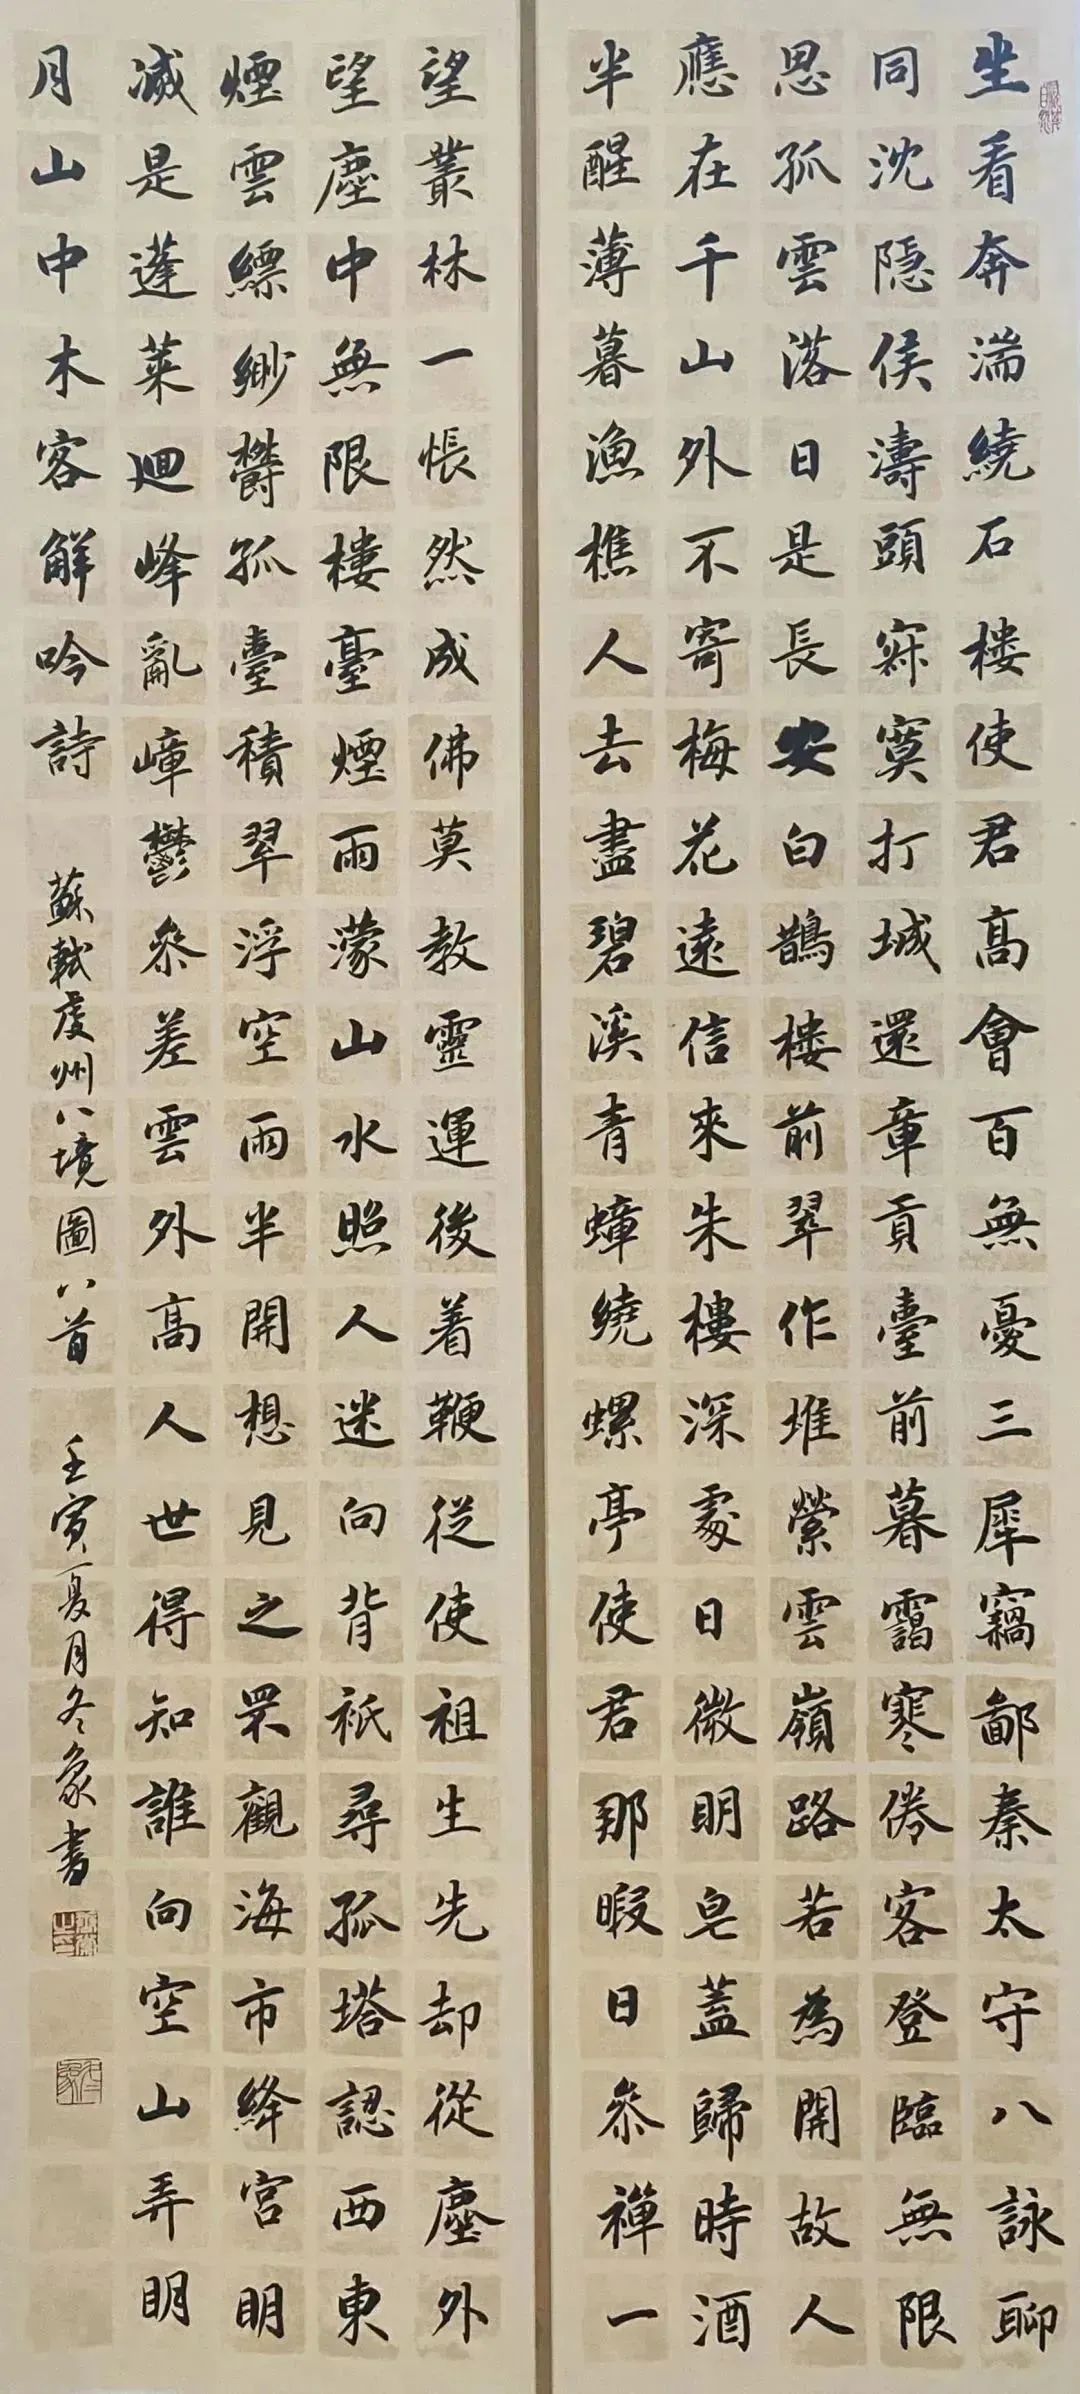 坐看奔湍繞石樓使君高會百無憂三犀竊鄙秦太守八詠聊
同沈隱侯濤頭寂寞打城還章貢臺前暮靄寒倦客登臨無限
思孤雲落日是長安白鵲樓前翠作堆縈雲嶺路若為開故人
應在千山外不寄梅花遠信來朱樓深處日微明皂蓋歸時酒
半醒薄暮漁樵人去盡碧溪青嶂繞螺亭使君那暇日參禪一
望叢林一悵然成佛莫教靈運後着鞭從使祖生先却從塵外
望塵中無限樓臺煙雨濛山水照人迷向背祇尋孤塔認西東
煙雲縹緲鬱孤臺積翠浮空雨半開想見之罘觀海市絳宮明
滅是蓬萊迴峰亂嶂鬱參差雲外高人世得知誰向空山弄明
月山中木客解吟詩
蘇軾虔州八境圖八首
壬寅夏月冬象書